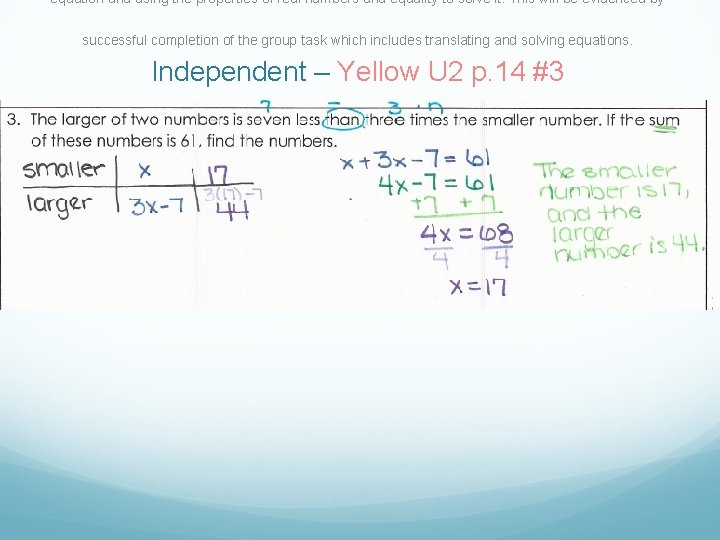 equation and using the properties of real numbers and equality to solve it. This will be evidenced by
successful completion of the group task which includes translating and solving equations.
Independent – Yellow U2 p.14 #3
7 - 3 · n
3. The larger of two numbers is seven less than three times the smaller number. If the sum
of these numbers is 61, find the numbers.
smaller x 17
larger 3x-7 3(17)-7
44
x+3x-7=61
4x-7=61
+7 +7
4x=68
4 4
x=17
The smaller
number is 17,
and the
larger
number is 44.